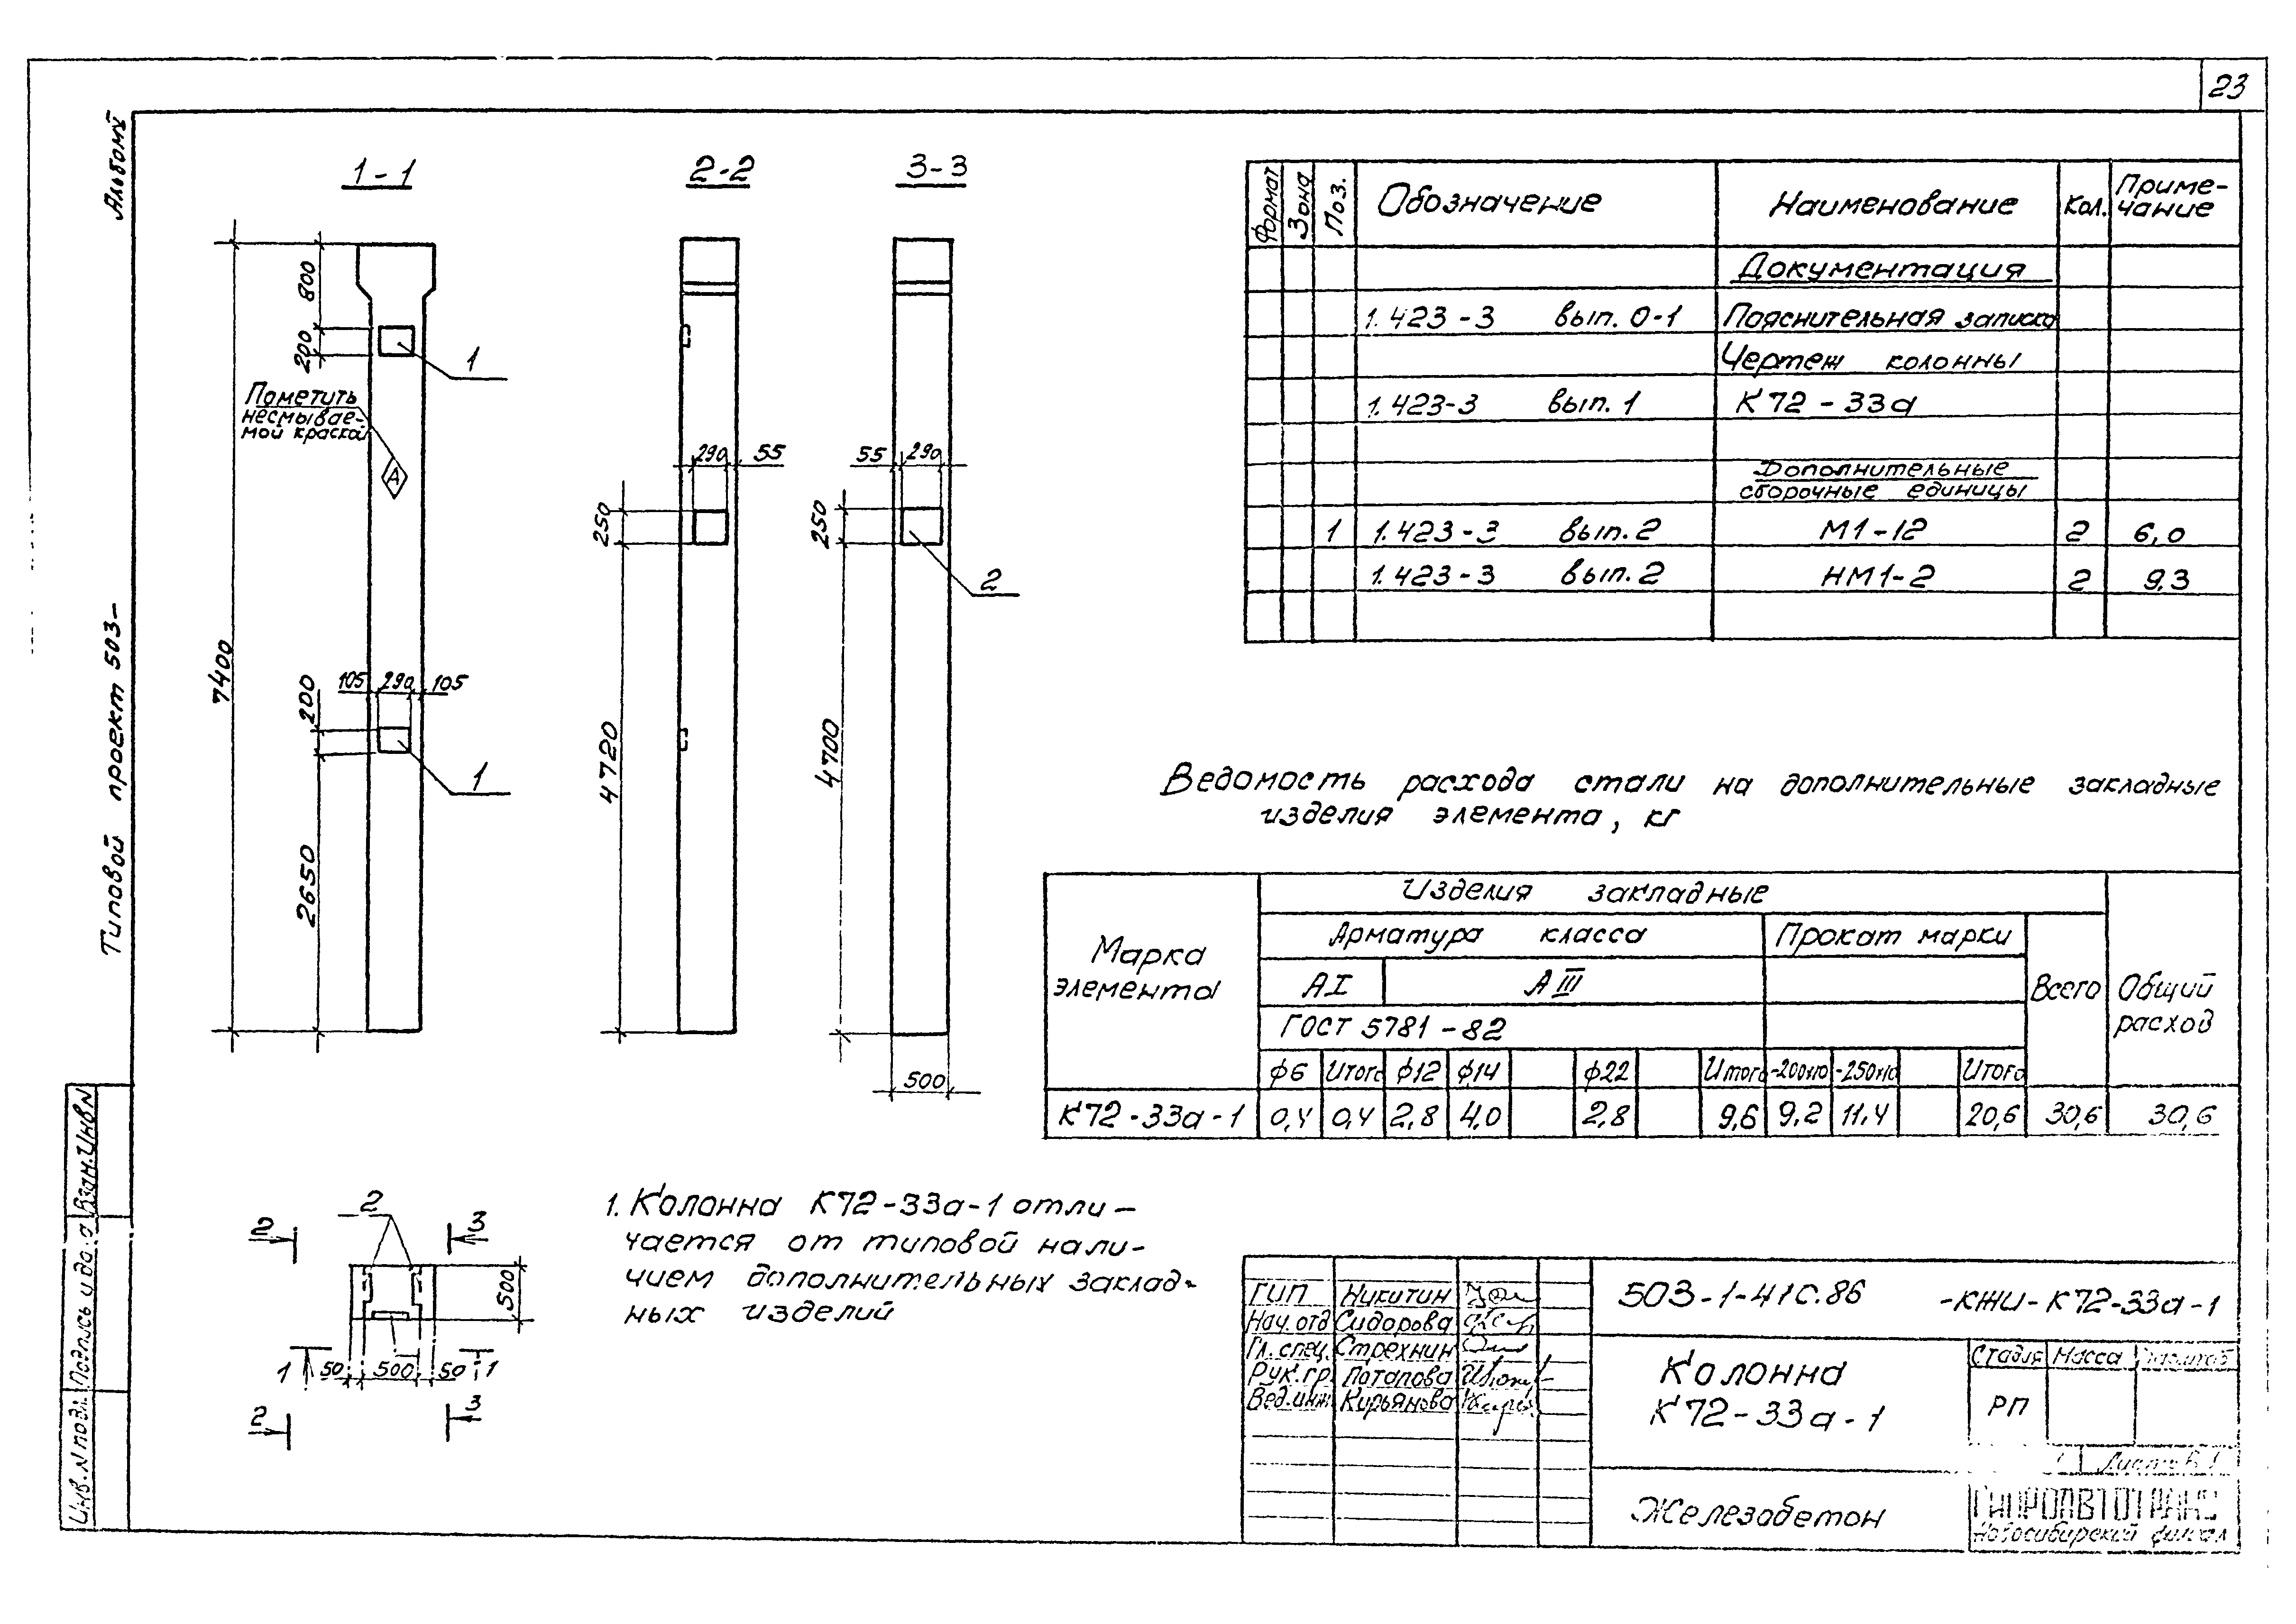 23
Альбом V
Типовой проект 503-
1-1
2-2
3-3
7400
800
200
1
Пометить
несмывае-
мой краской
А
105 290 105
200
1
2650
290 55
250
4720
55 290
250
2
4700
500
Формат Зона Поз. Обозначение Наименование Кол. Приме-
чание
Документация
1.423-3 вып. 0-1 Пояснительная записка
Чертеж колонны
1.423-3 вып. 1 К72-33а
Дополнительные
сборочные единицы
1 1.423-3 вып. 2 М1-12 2 6,0
1.423-3 вып. 2 НМ1-2 2 9.3
Ведомость расхода стали на дополнительные закладные
изделия элемента, кг
Марка
элемента
Изделия закладные
Арматура класса Прокат марки
АI АIII
ГОСТ 5781-82
Всего Общий
расход
ф6 Итого ф12 ф14 ф22 Итого -200х10 -250х10 Итого
К72-33а-1 0,4 0,4 2,8 4,0 2,8 9,6 9,2 11,4 20,6 30,6 30,6
1. Колонна К72-33а-1 отли-
чается от типовой нали-
чием дополнительных заклад-
ных изделий
2
2 3
500
1 50 500 50 1
2 3
Взам.инв N
Подпись и
Инв. N подл.
ГИП Никитин
Нач. отд Сидорова
Гл. спец. Стрехнин
Рук. гр. Потапова
Вед. инж Кирьянова
503-1-41с.86 -КЖИ-К72-33а-1
Колонна
К72-33а-1
Стадия Масса Масштаб
РП
1 Листов 1
Железобетон
ГИПРОАВТОТРАНС
Новосибирский филиал